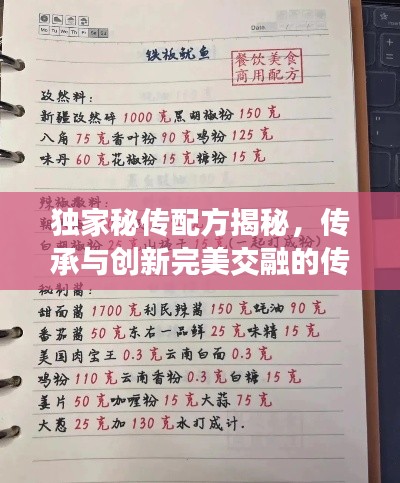 Mo Tu We Th Fr Sa Su
Date:
铁板鱿鱼
餐饮美食
商用配方
孜然料:
新疆孜然碎 1000 克黑胡椒粉 150 克
八角 75 克香叶粉 90 克鸡粉 125 克
味丹 60 克花椒粉 15 克糖粉 15 克
独家秘传配方揭秘，传
承与创新完美交融的传
秘制酱:
甜面酱 1700 克利民辣酱 150 克蚝油 90 克
番茄酱 50 克东右一品鲜 25 克味精 15 克
美国肉宝王 0.3 克云南白面 0.3 克
鸡粉 110 克云南香粉 0.3 克白糖 15 克
姜片 50 克咖喱粉 15 克大蒜 75 克
大葱 25 克加 130 克水打成计.